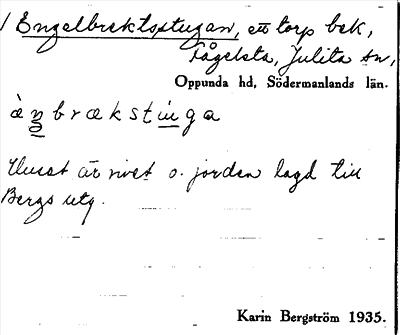 1 Engelbrektsstugan, ett torp bek,
Fågelsta, Julita sn,
Oppunda hd, Södermanlands län.
Huset är rivet o. jorden lagd till
Bergs utg.
Karin Bergström 1935.